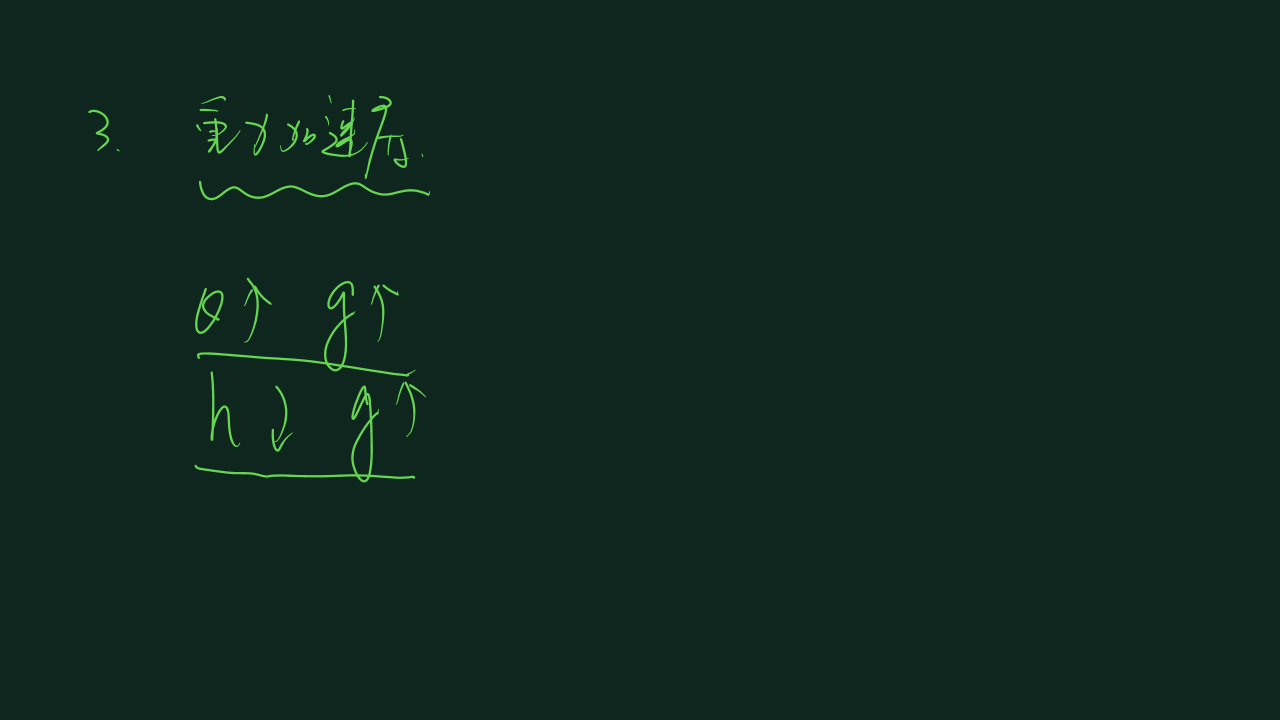 3. 重力加速度.
θ↑ g↑
h↓ g↑